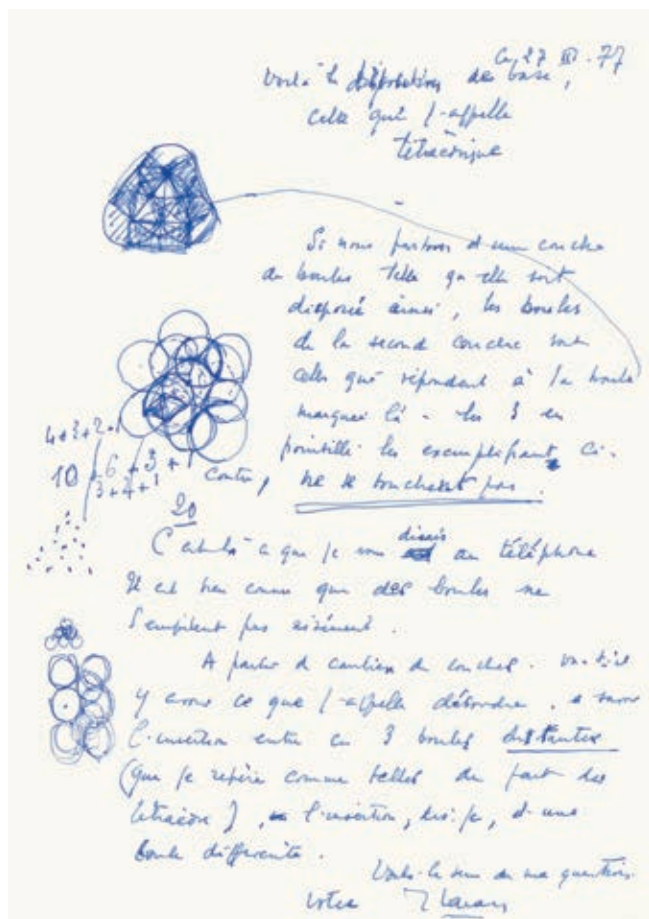 Ce 27 III. 77
Voilà la disposition de base,
celle que j'appelle
tétraédrique
Si nous partons d'une couche
de boules telle qu'elle soit
disposée ainsi, les boules
de la second couche sont
celles qui répondent à la boule
marquée là - les 3 en
pointillé les exemplifiant ci-
4+3+2+1
10 6 + 3 + 1
contre, ne se touchent pas.
3+2+1
20
C'est là ce que je vous disais au téléphone
Il est bien connu que des boules ne
s'empilent pas aisément.
A partir de de couches. va-t-il
y avoir ce que j'appelle désordre, à savoir
l'insertion entre ces 3 boules distantes
(que je repère comme telles du fait des
tétraèdre), l'insertion, dis-je, d'une
boule différente.
Voilà le sens de ma question.
Votre J Lacan